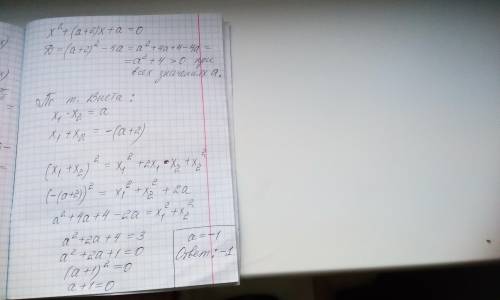 x² + (a+2)x + a = 0
D = (a+2)² - 4a = a² + 4a + 4 - 4a =
= a² + 4 > 0 при
всех значениях a.
По т. Виета:
x₁ · x₂ = a
x₁ + x₂ = -(a+2)
(x₁ + x₂)² = x₁² + 2x₁ · x₂ + x₂²
(-(a+2))² = x₁² + x₂² + 2a
a² + 4a + 4 - 2a = x₁² + x₂²
a² + 2a + 4 = 3
a² + 2a + 1 = 0
(a+1)² = 0
a + 1 = 0
a = -1
Ответ: -1